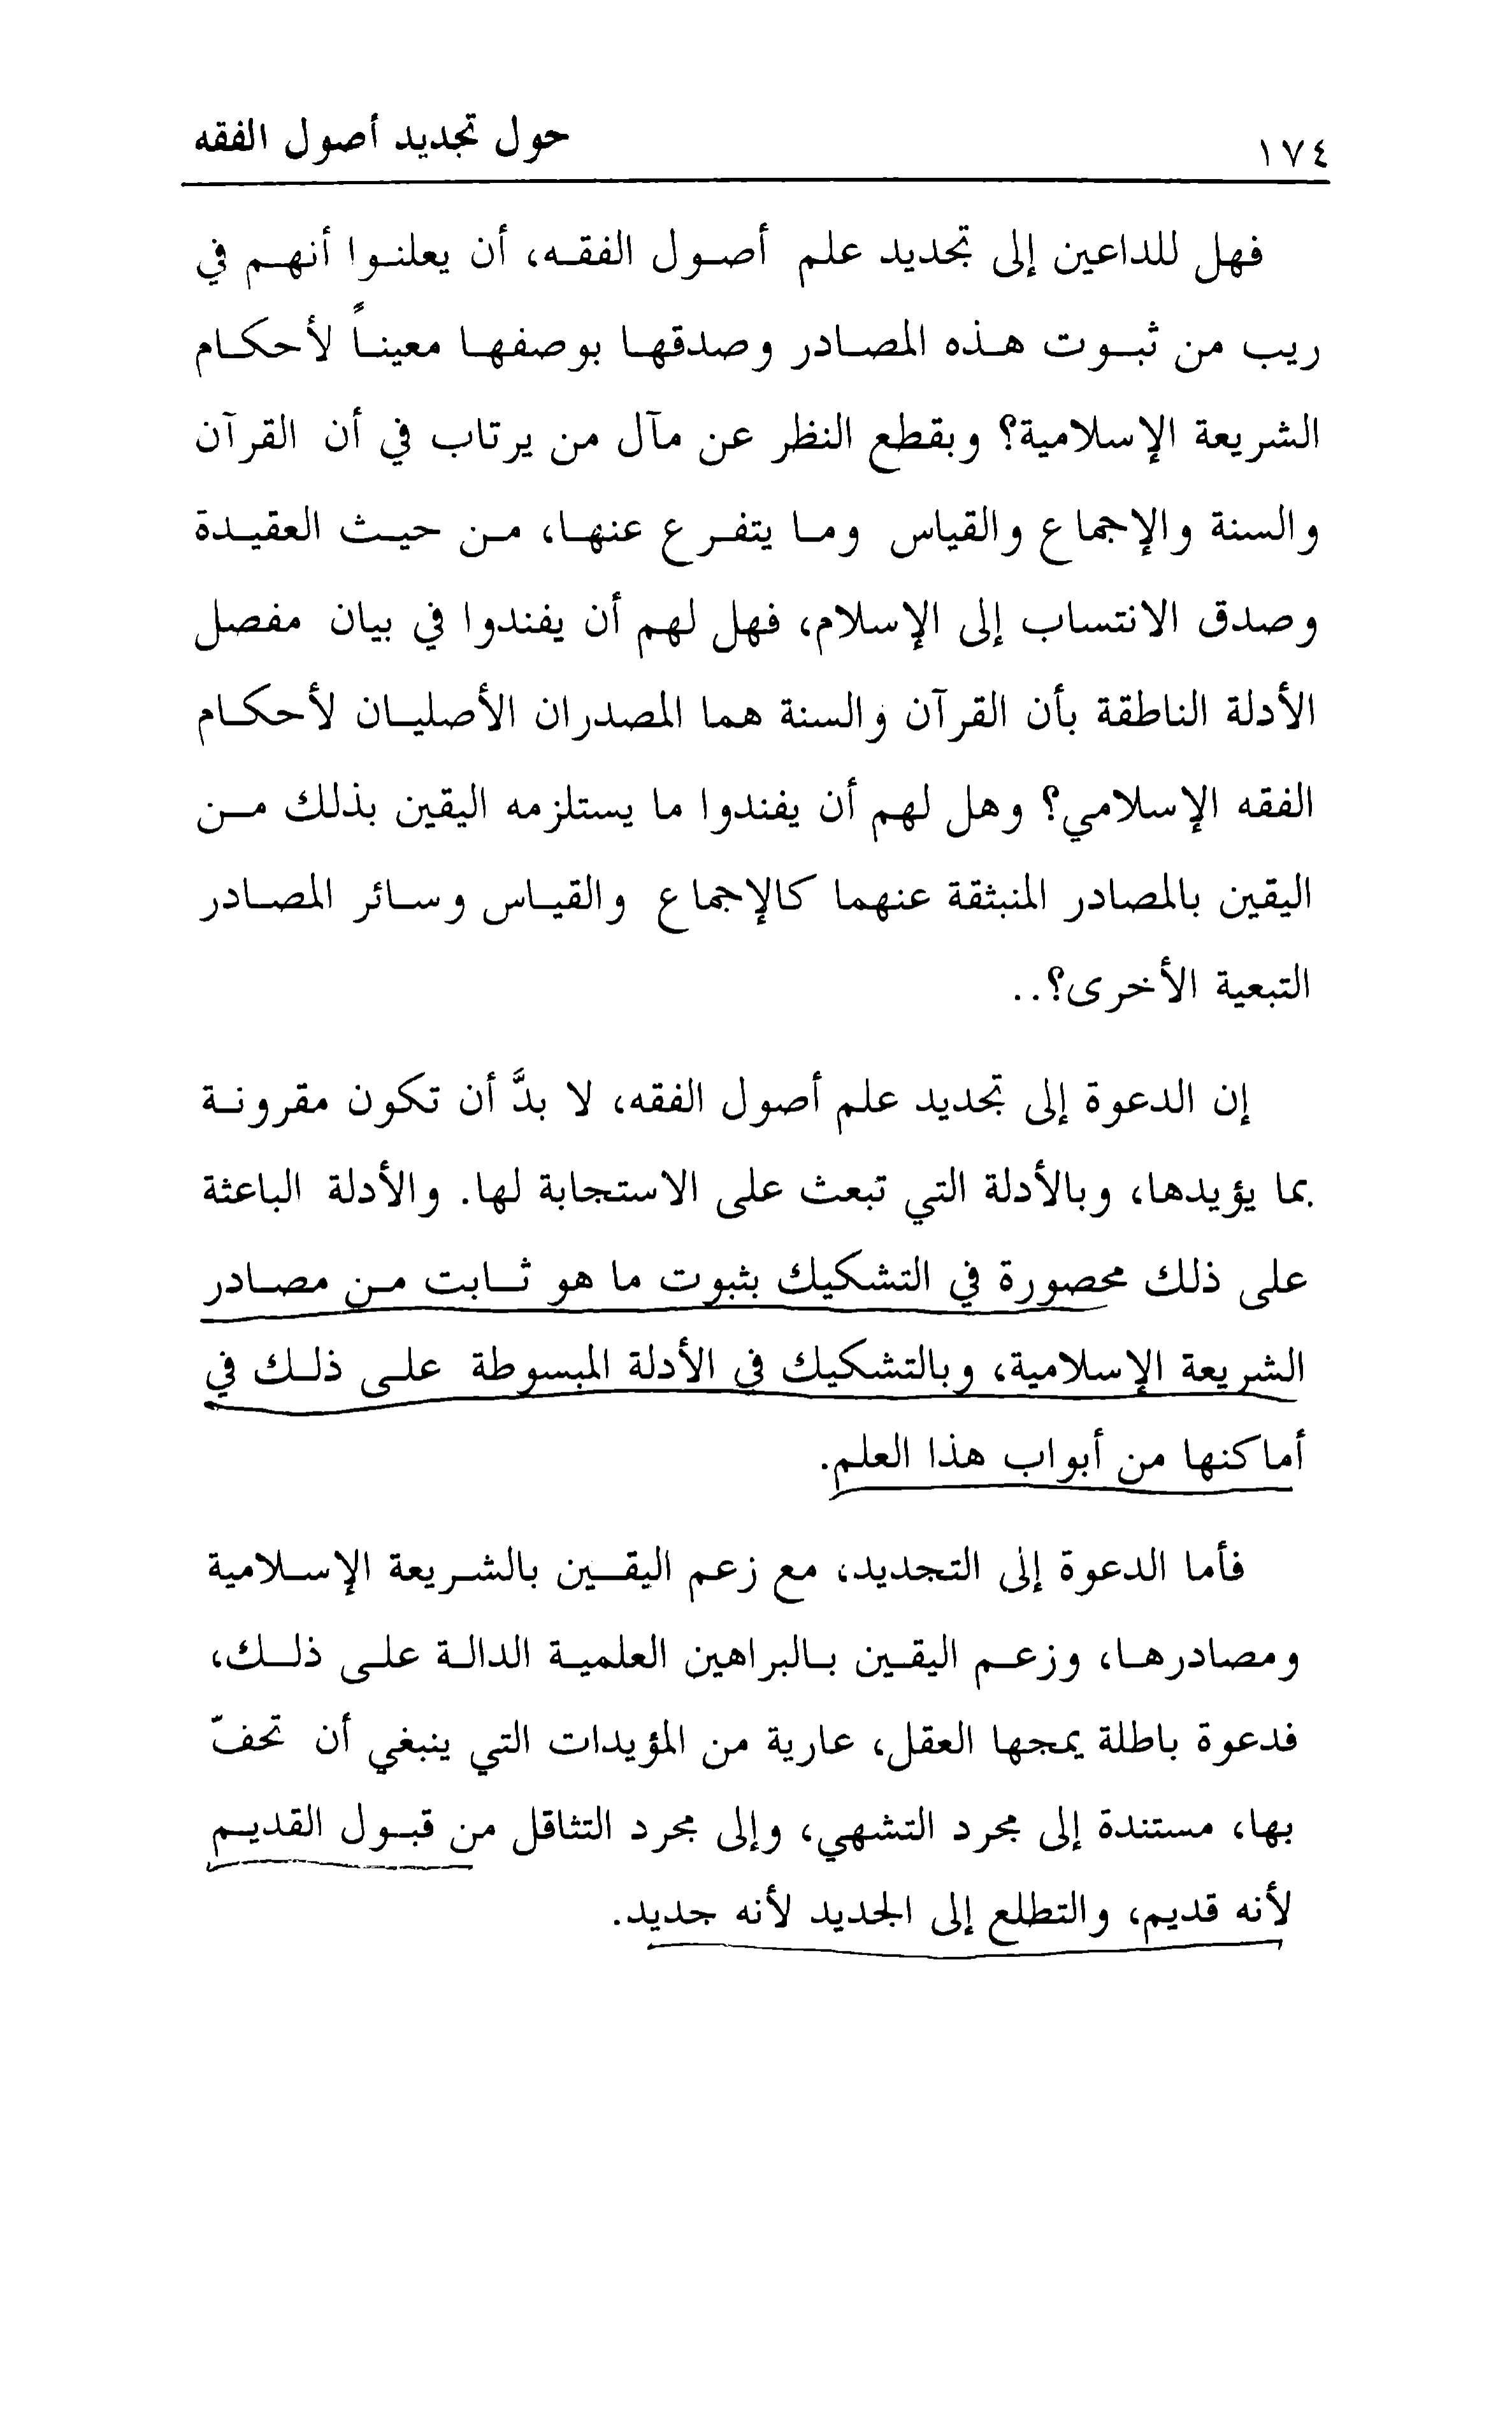 ١٧٤
حول تجديد أصول الفقه
فهل للداعين إلى تجديد علم أصول الفقه، أن يعلنوا أنهم في
ريب من ثبوت هذه المصادر وصدقها بوصفها معيناً لأحكام
الشريعة الإسلامية؟ وبقطع النظر عن مآل من يرتاب في أن القرآن
والسنة والإجماع والقياس وما يتفرع عنها، من حيث العقيدة
وصدق الانتساب إلى الإسلام، فهل لهم أن يفندوا في بيان مفصل
الأدلة الناطقة بأن القرآن والسنة هما المصدران الأصليان لأحكام
الفقه الإسلامي؟ وهل لهم أن يفندوا ما يستلزمه اليقين بذلك من
اليقين بالمصادر المنبثقة عنهما كالإجماع والقياس وسائر المصادر
التبعية الأخرى؟..
إن الدعوة إلى تجديد علم أصول الفقه، لا بدَّ أن تكون مقرونة
بما يؤيدها، وبالأدلة التي تبعث على الاستجابة لها. والأدلة الباعثة
على ذلك محصورة في التشكيك بثبوت ما هو ثابت من مصادر
الشريعة الإسلامية، وبالتشكيك في الأدلة المبسوطة على ذلك في
أماكنها من أبواب هذا العلم.
فأما الدعوة إلى التجديد، مع زعم اليقين بالشريعة الإسلامية
ومصادرها، وزعم اليقين بالبراهين العلمية الدالة على ذلك،
فدعوة باطلة يمجها العقل، عارية من المؤيدات التي ينبغي أن تحفّ
بها، مستندة إلى مجرد التشهي، وإلى مجرد التثاقل من قبول القديم
لأنه قديم، والتطلع إلى الجديد لأنه جديد.